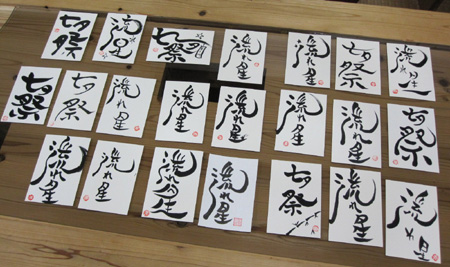 七夕祭
流れ星
七夕祭
流れ星
流れ星
七夕祭
流れ星
七夕祭
七夕祭
流れ星
流れ星
流れ星
流れ星
流れ星
七夕祭
流れ星
流れ星
流れ星
流れ星
七夕祭
流れ星
流れ星